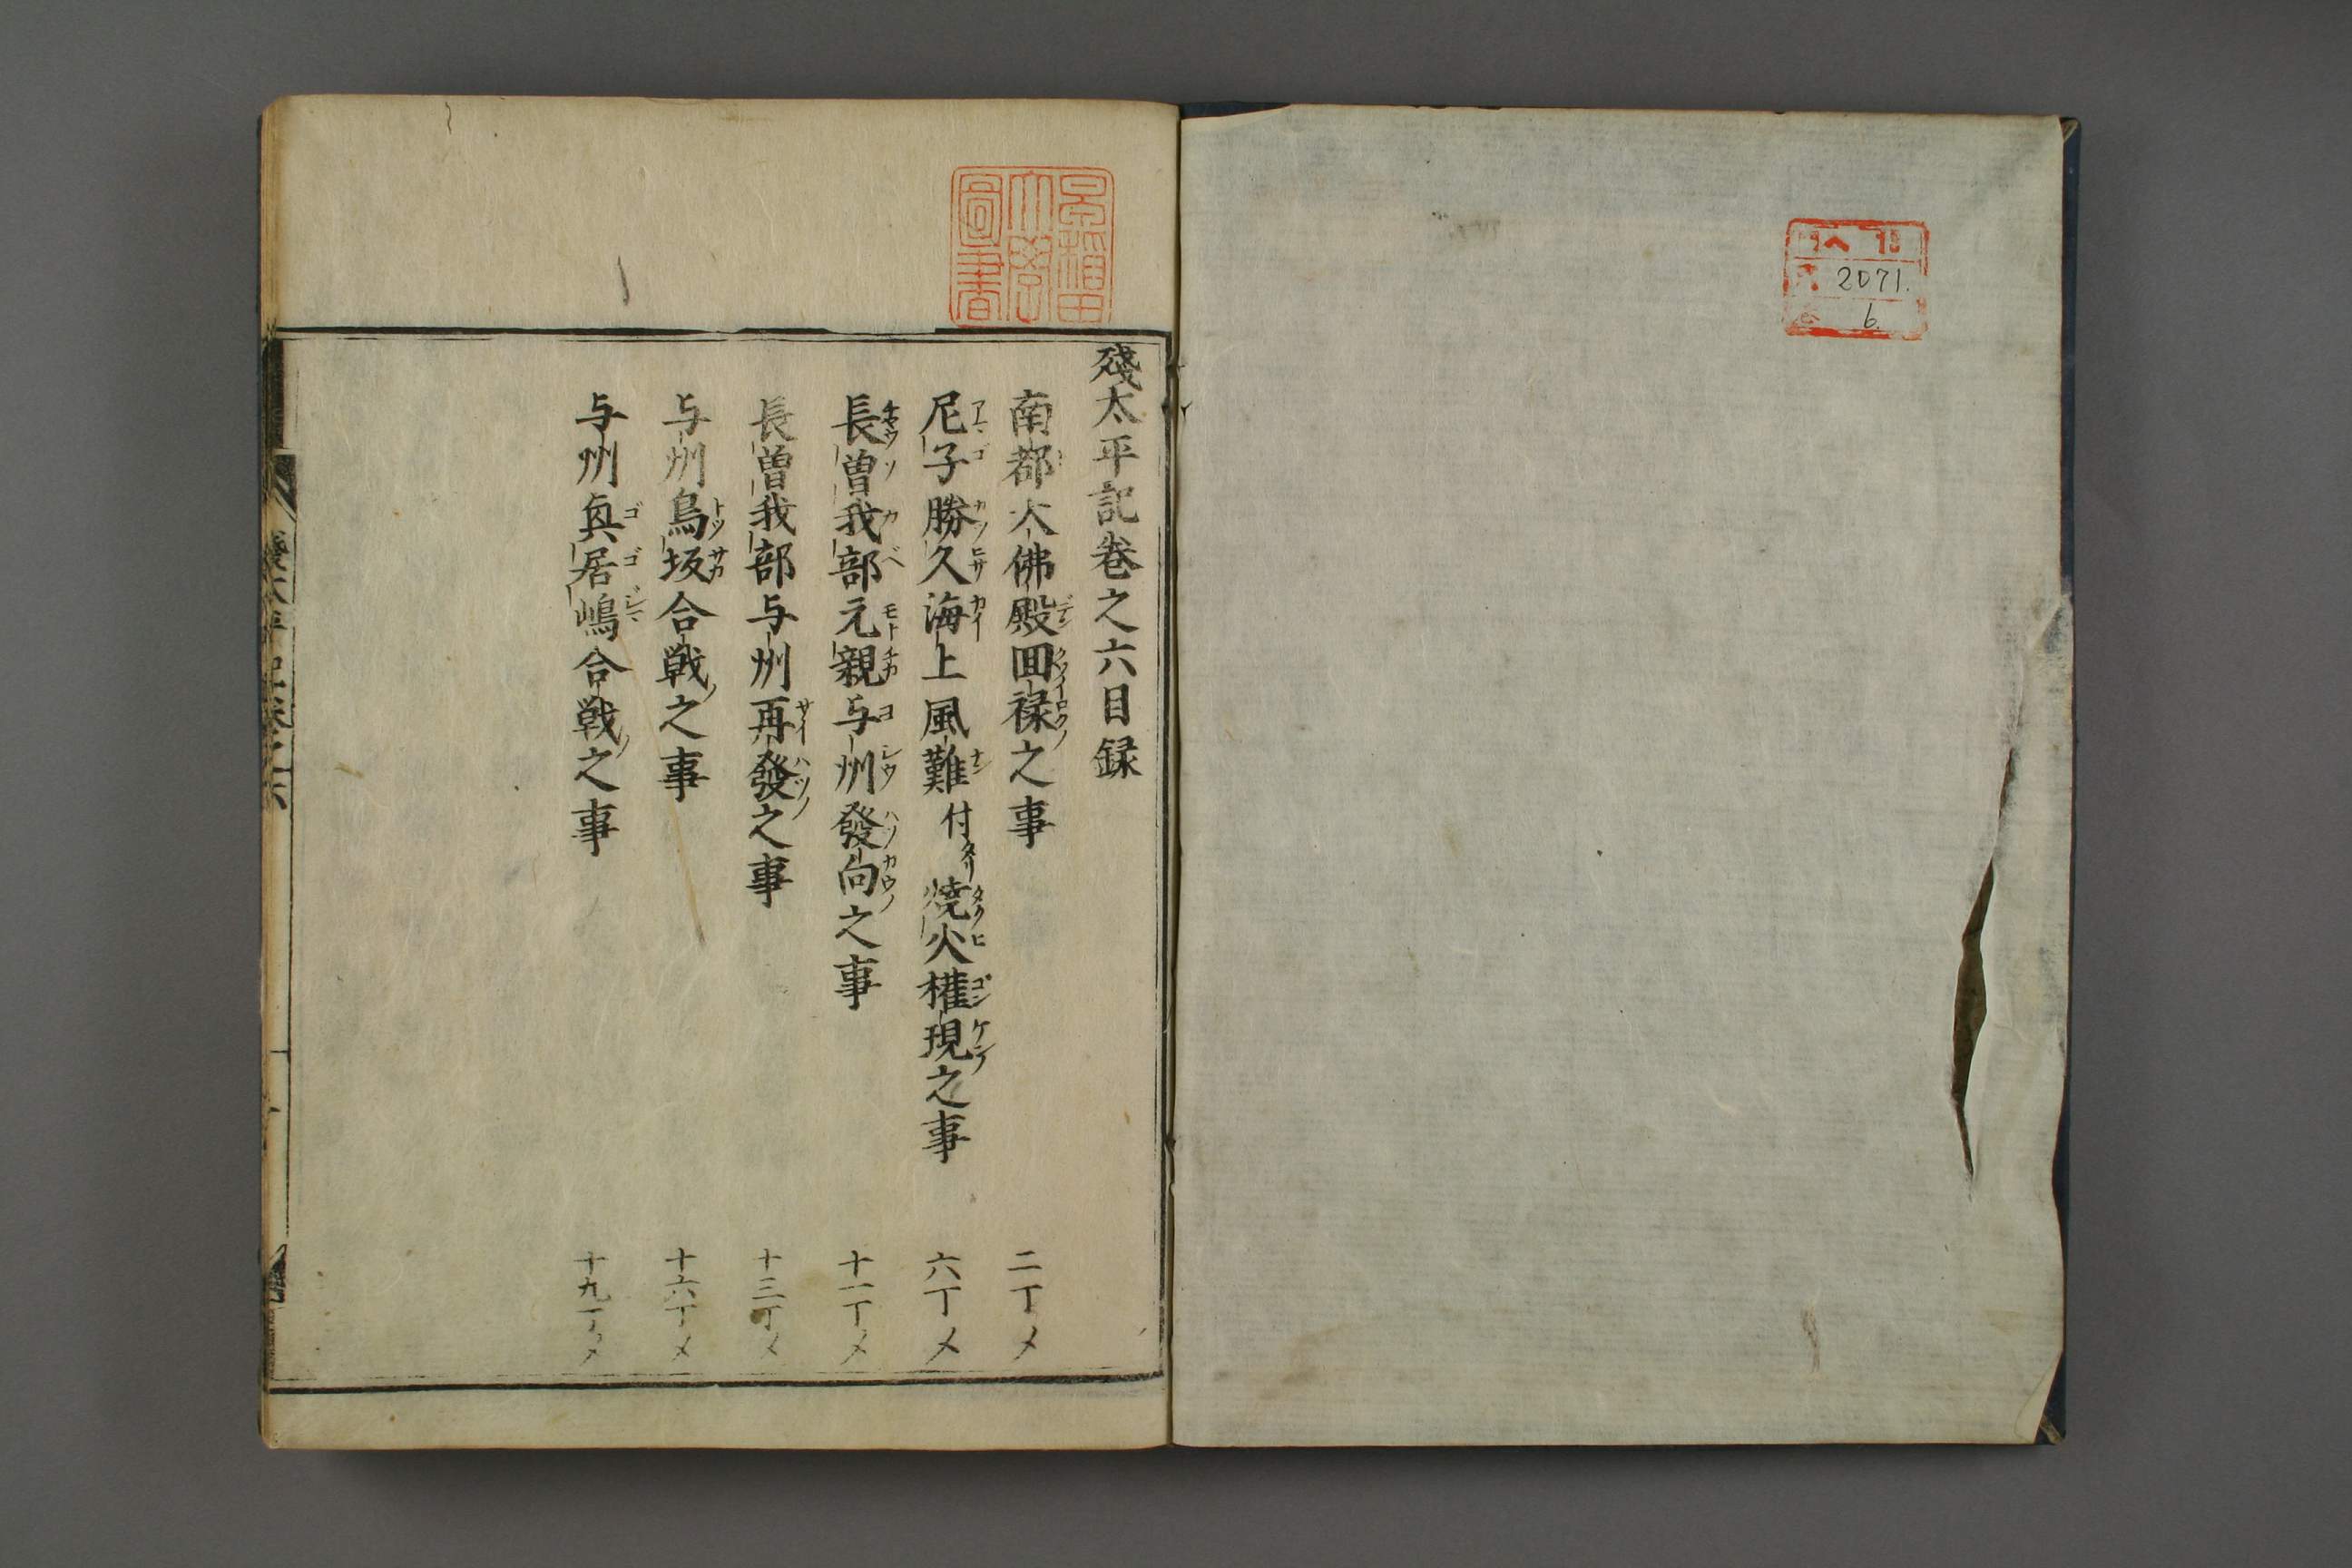 門 ヘ 13
号 2071.
巻 6.
早稲田
大學
圖書
殘太平記巻之六目録
南都大佛殿囬禄之事 二丁メ
尼子勝久海上風難付焼火権現之事 六丁メ
長曽我部元親与州發向之事 十一丁メ
長曽我部与州再發之事 十三丁メ
与州鳥坂合戦之事 十六丁メ
与州真居嶋合戦之事 十九丁メ